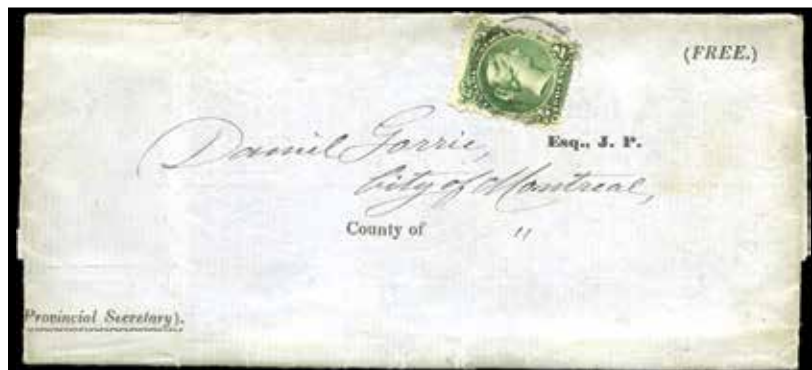 (FREE.)
Daniel Gorrie, Esq., J. P.
City of Montreal,
County of "
Provincial Secretary).